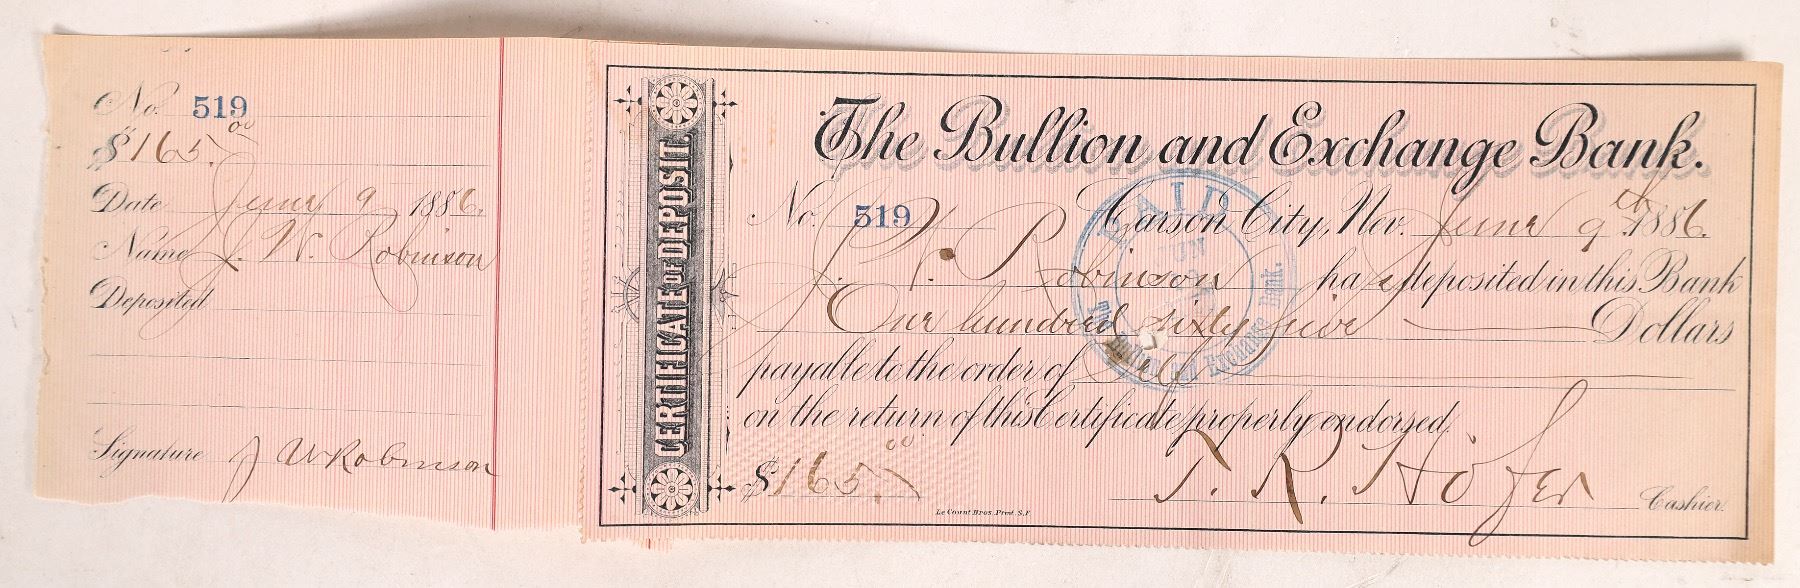 No. 519
$165.00
Date June 9 1886.
Name J. W. Robinson
Deposited
Signature J W Robinson
CERTIFICATE OF DEPOSIT
The Bullion and Exchange Bank.
No. 519 Carson City, Nev. June 9th 1886.
J. W. Robinson has deposited in this Bank
One hundred sixty five Dollars
payable to the order of Self
on the return of this Certificate properly endorsed.
$165.00
T. R. Hofer Cashier.
Le Count Bros. Print. S.F.
PAID
JUN
9
The Bullion and Exchange Bank.